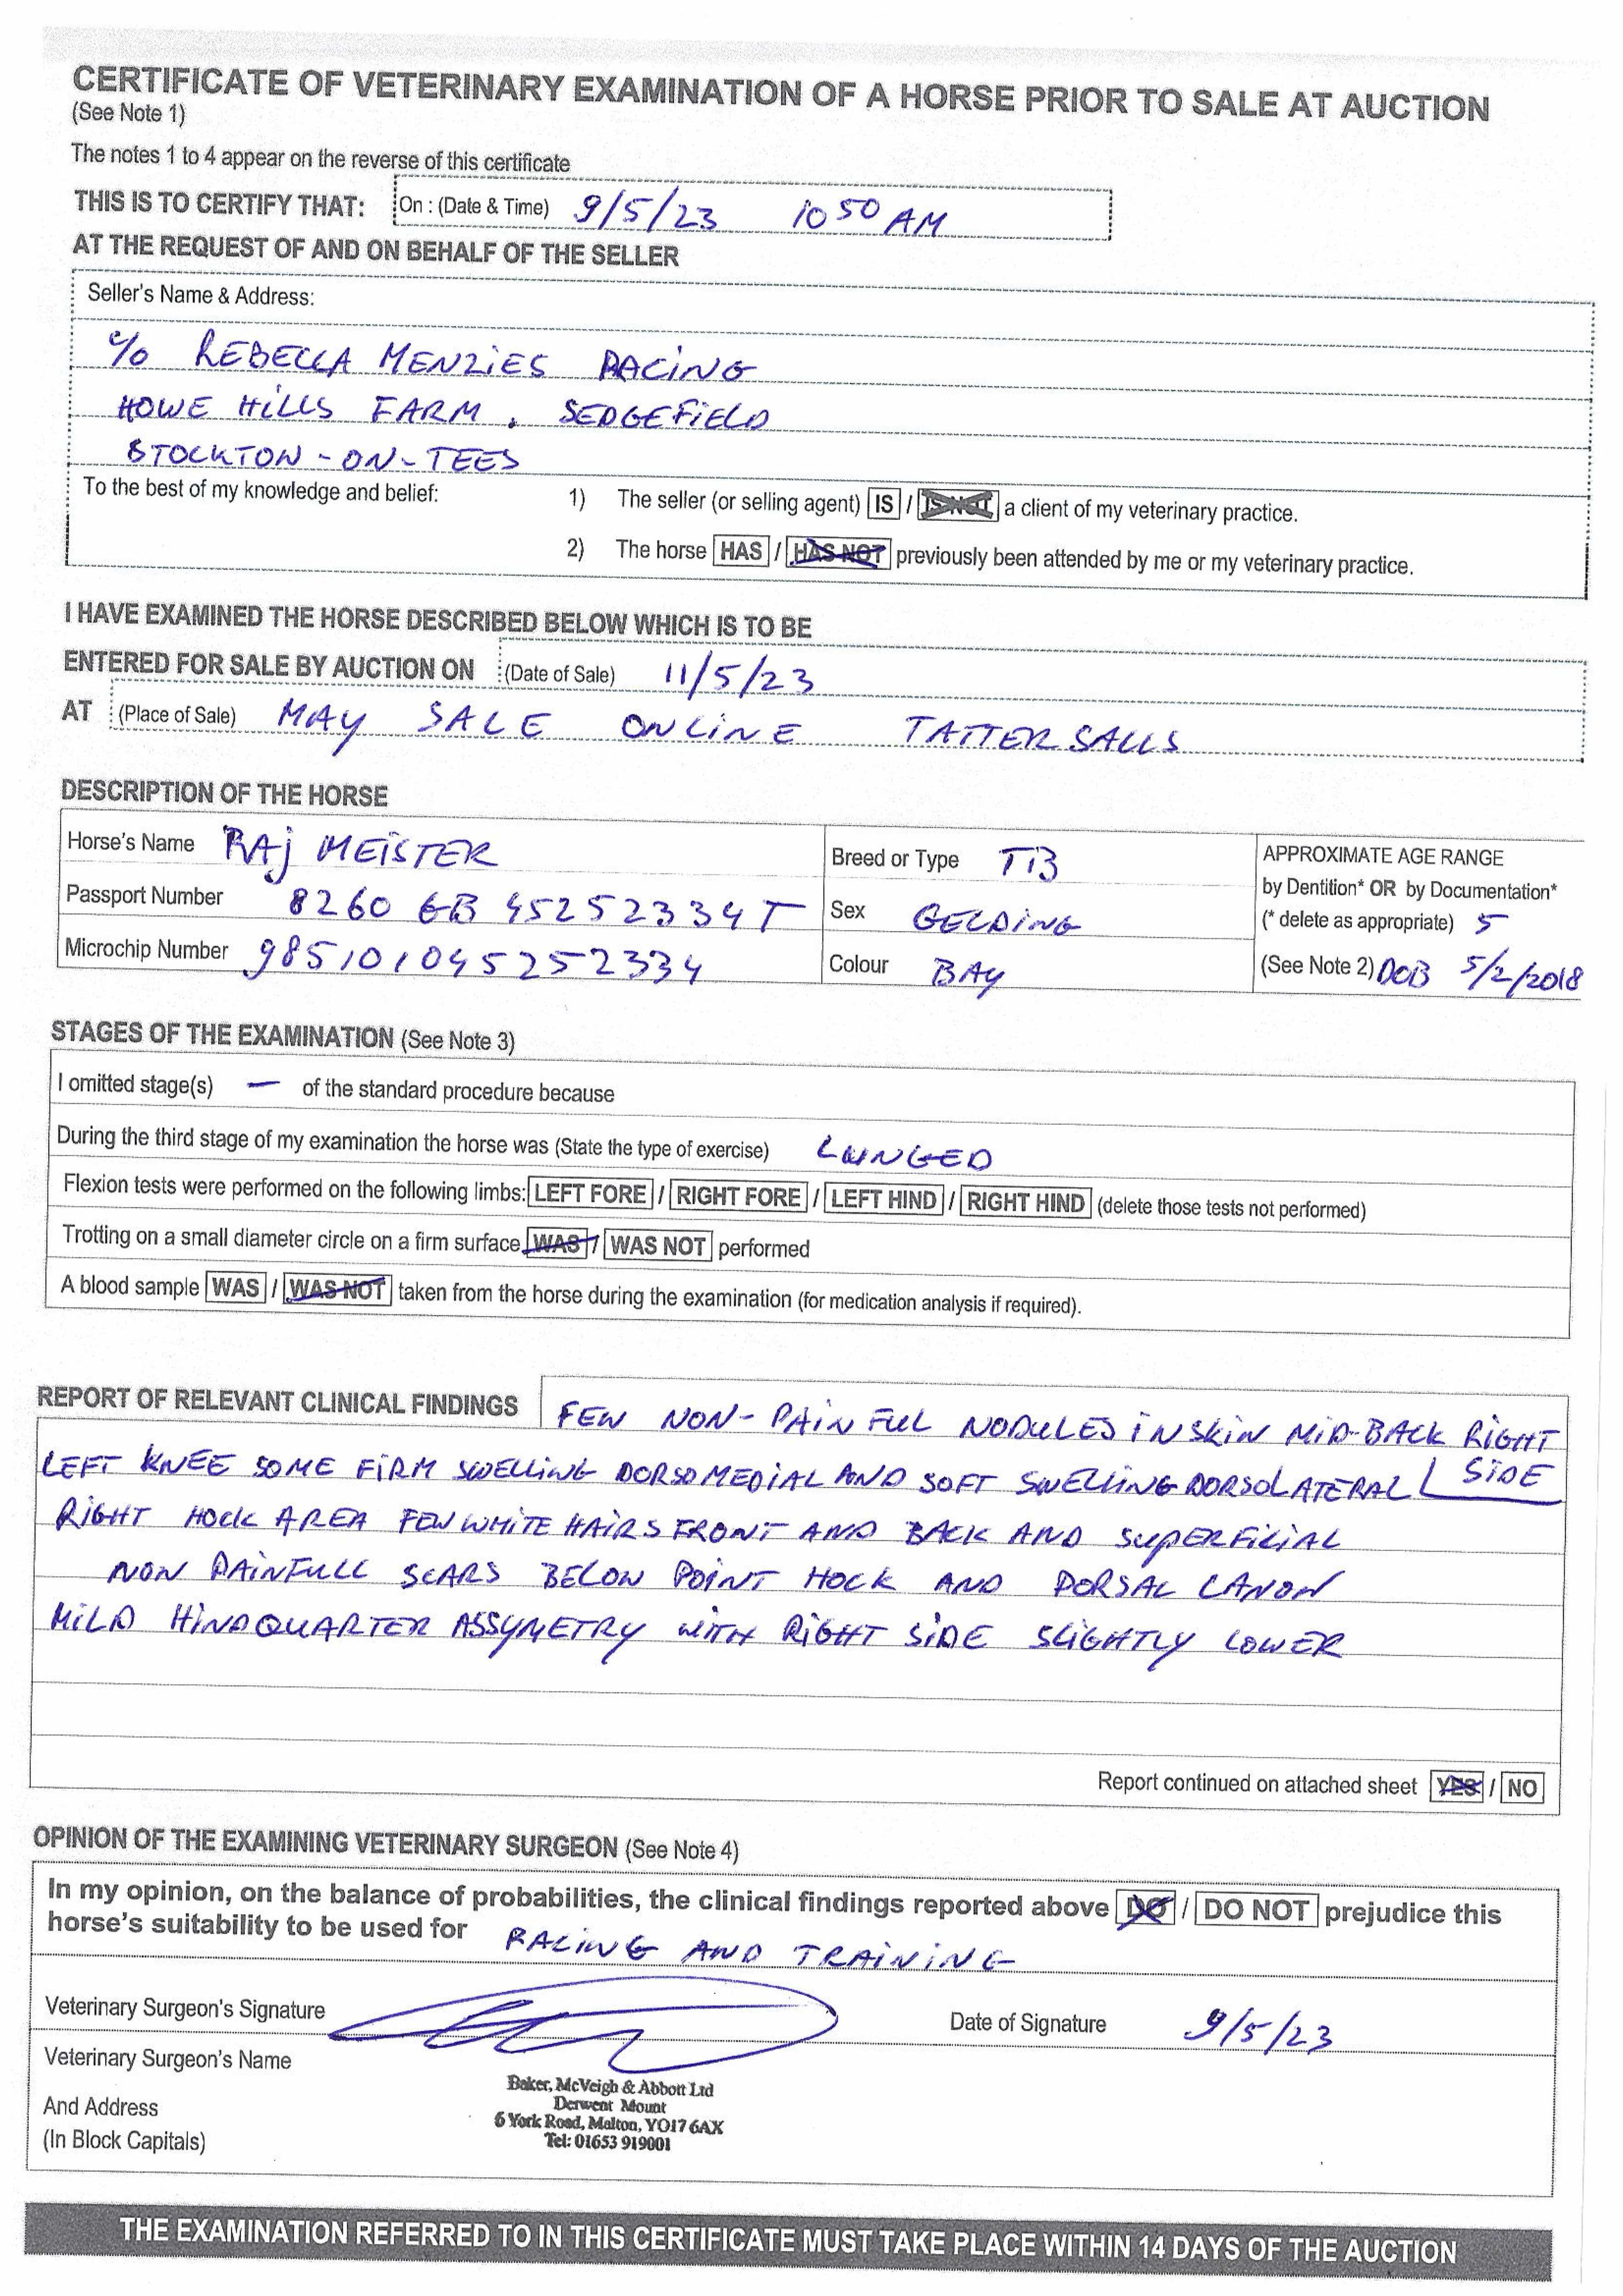 CERTIFICATE OF VETERINARY EXAMINATION OF A HORSE PRIOR TO SALE AT AUCTION
(See Note 1)
The notes 1 to 4 appear on the reverse of this certificate
THIS IS TO CERTIFY THAT: On : (Date & Time) 9/5/23 10 50 AM
AT THE REQUEST OF AND ON BEHALF OF THE SELLER
Seller's Name & Address:
c/o REBECCA MENZIES RACING
HOWE HILLS FARM, SEDGEFIELD
STOCKTON-ON-TEES
To the best of my knowledge and belief: 1) The seller (or selling agent) IS / IS NOT a client of my veterinary practice.
2) The horse HAS / HAS NOT previously been attended by me or my veterinary practice.
I HAVE EXAMINED THE HORSE DESCRIBED BELOW WHICH IS TO BE
ENTERED FOR SALE BY AUCTION ON (Date of Sale) 11/5/23
AT (Place of Sale) MAY SALE ONLINE TATTERSALLS
DESCRIPTION OF THE HORSE
Horse's Name RAJ MEISTER Breed or Type TB APPROXIMATE AGE RANGE
Passport Number 8260 GB 45252334T Sex GELDING by Dentition* OR by Documentation*
(* delete as appropriate) 5
Microchip Number 985101045252334 Colour BAY (See Note 2) DOB 5/2/2018
STAGES OF THE EXAMINATION (See Note 3)
I omitted stage(s) — of the standard procedure because
During the third stage of my examination the horse was (State the type of exercise) LUNGED
Flexion tests were performed on the following limbs: LEFT FORE / RIGHT FORE / LEFT HIND / RIGHT HIND (delete those tests not performed)
Trotting on a small diameter circle on a firm surface WAS / WAS NOT performed
A blood sample WAS / WAS NOT taken from the horse during the examination (for medication analysis if required).
REPORT OF RELEVANT CLINICAL FINDINGS FEW NON-PAINFUL NODULES IN SKIN MID-BACK RIGHT
LEFT KNEE SOME FIRM SWELLING DORSOMEDIAL AND SOFT SWELLING DORSOLATERAL SIDE
RIGHT HOCK AREA FEW WHITE HAIRS FRONT AND BACK AND SUPERFICIAL
NON PAINFULL SCARS BELOW POINT HOCK AND DORSAL CANON
MILD HINDQUARTER ASSYMETRY WITH RIGHT SIDE SLIGHTLY LOWER
Report continued on attached sheet YES / NO
OPINION OF THE EXAMINING VETERINARY SURGEON (See Note 4)
In my opinion, on the balance of probabilities, the clinical findings reported above DO / DO NOT prejudice this
horse's suitability to be used for RACING AND TRAINING
Veterinary Surgeon's Signature Date of Signature 9/5/23
Veterinary Surgeon's Name
Baker, McVeigh & Abbott Ltd
Derwent Mount
And Address 6 York Road, Malton, YO17 6AX
(In Block Capitals) Tel: 01653 919001
THE EXAMINATION REFERRED TO IN THIS CERTIFICATE MUST TAKE PLACE WITHIN 14 DAYS OF THE AUCTION